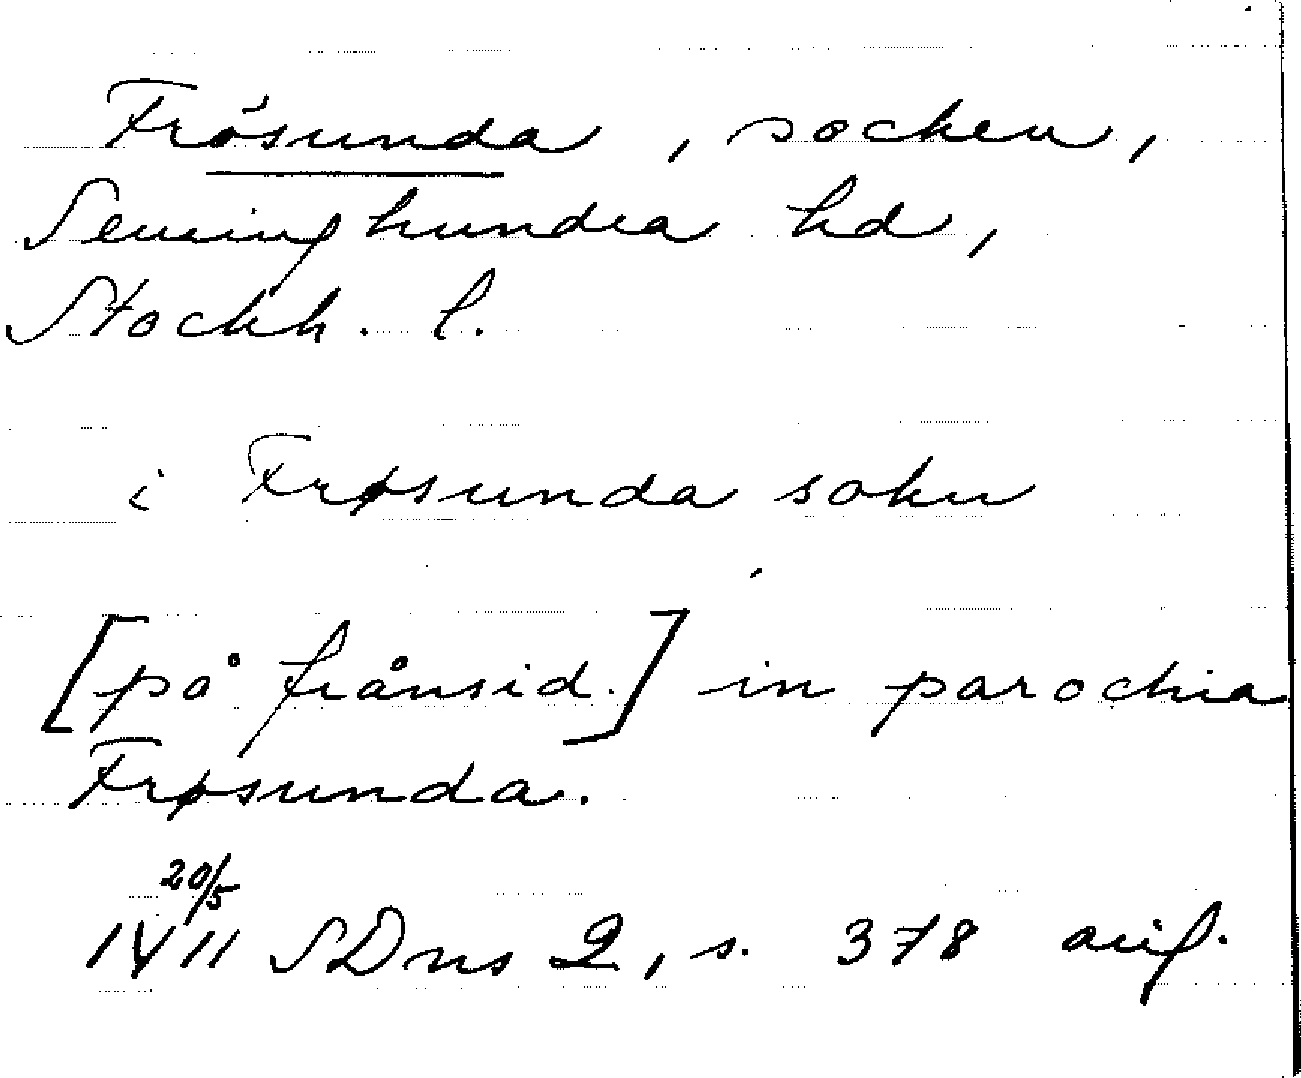 Frösunda, socken,
Seminghundra hd,
Stockh. l.
i Frøsunda sokn
[på frånsid.] in parochia
Frøsunda.
20/5
1411 SDns 2, s. 378 avf.